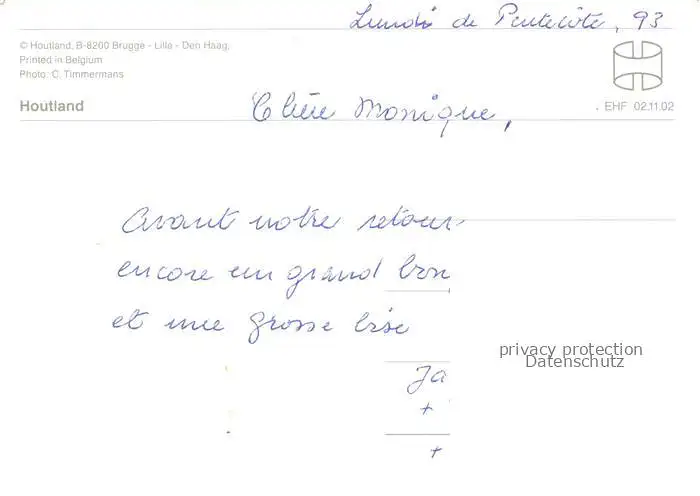 Lundi de Pentecôte, 93
© Houtland, B-8200 Brugge - Lilla - Den Haag.
Printed in Belgium
Photo: C. Timmermans
Houtland
EHF 02.11.02
Chère Monique,
Avant notre retour
encore un grand bon
et une grosse bise
privacy protection
Datenschutz
Ja
+
+